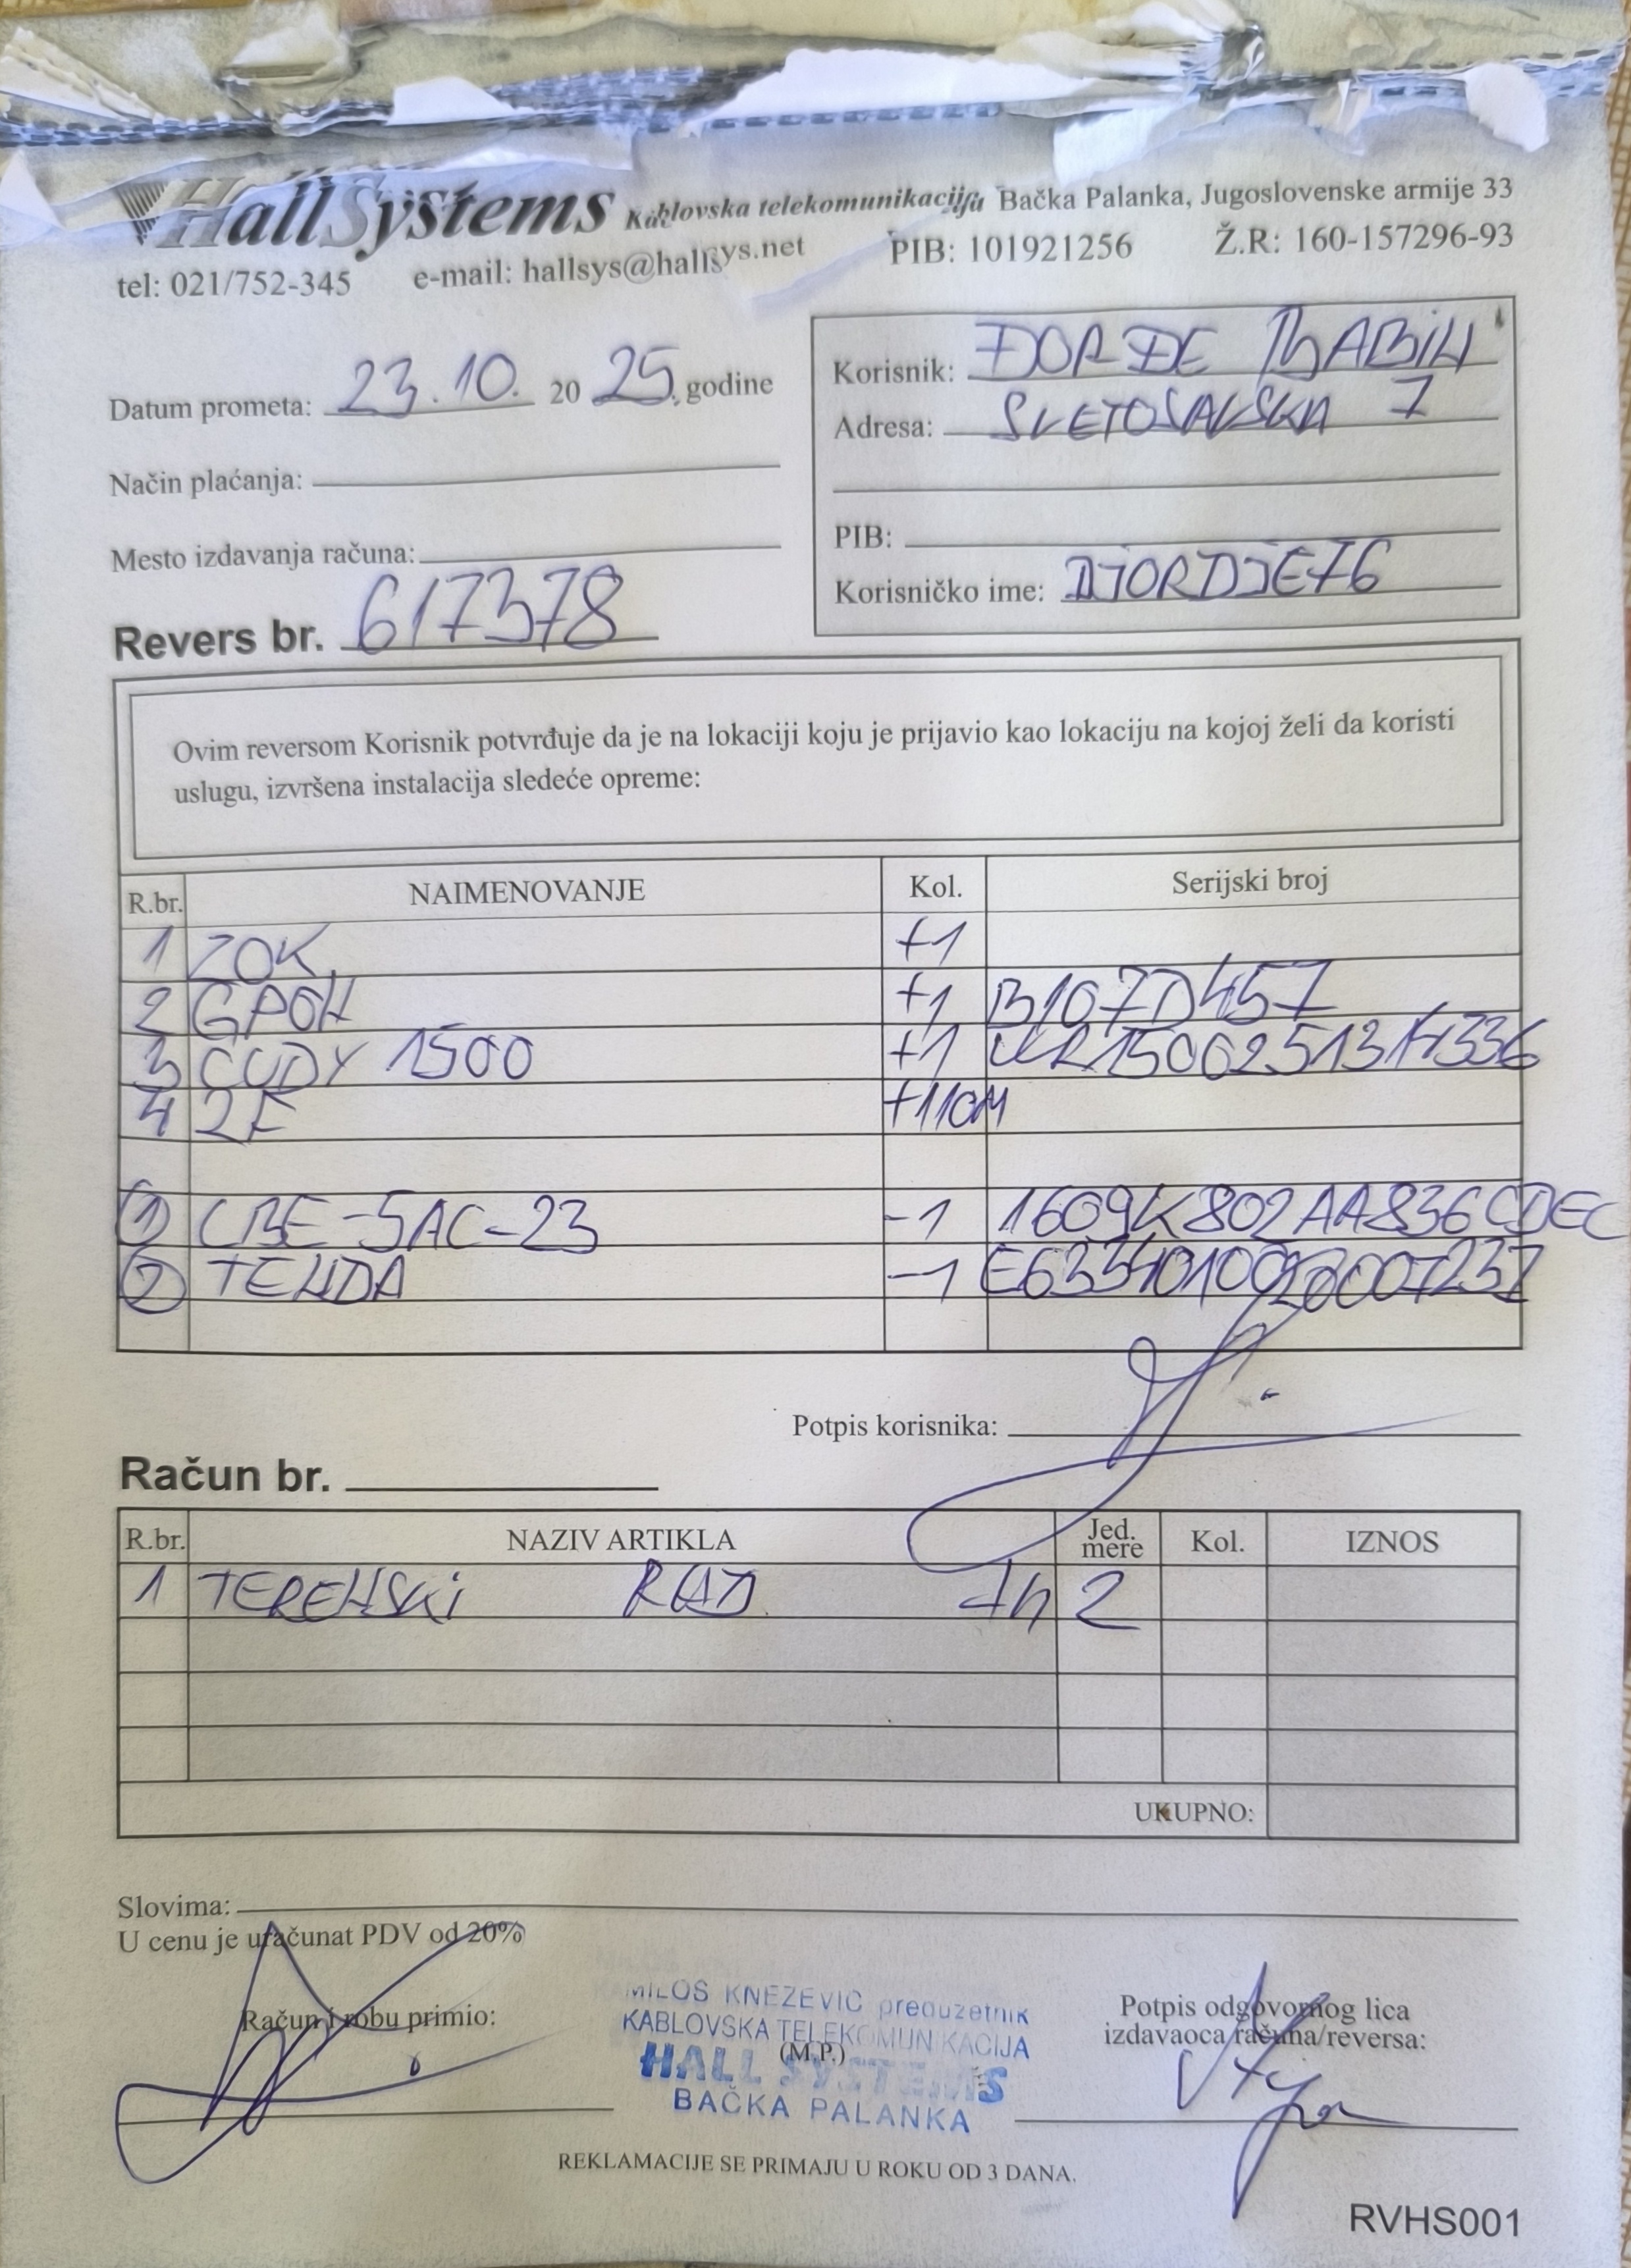 HallSystems Kablovska telekomunikacija Bačka Palanka, Jugoslovenske armije 33
tel: 021/752-345 e-mail: hallsys@hallsys.net PIB: 101921256 Ž.R: 160-157296-93
Datum prometa: 23.10. 20 25. godine
Način plaćanja:
Mesto izdavanja računa:
Revers br. 617378
Korisnik: ĐORĐE BABIH
Adresa: SVETOSAVSKA 7
PIB:
Korisničko ime: DJORDJE76
Ovim reversom Korisnik potvrđuje da je na lokaciji koju je prijavio kao lokaciju na kojoj želi da koristi
uslugu, izvršena instalacija sledeće opreme:
R.br. NAIMENOVANJE Kol. Serijski broj
1 ZOK +1
2 GPOH +1 B107D457
3 CUDY 1500 +1
4 2F +110M
1 CBE-5AC-23 -1 1609K802AA836CDEC
2 TEHDA -1
Potpis korisnika:
Račun br.
R.br. NAZIV ARTIKLA Jed. mere Kol. IZNOS
1 TEREHSKI RAD 2
UKUPNO:
Slovima:
U cenu je uračunat PDV od 20%
Račun i robu primio:
MILOS KNEZEVIC preduzetnik
KABLOVSKA TELEKOMUNIKACIJA
(M.P.)
HALL SYSTEMS
BAČKA PALANKA
Potpis odgovornog lica
izdavaoca računa/reversa:
REKLAMACIJE SE PRIMAJU U ROKU OD 3 DANA.
RVHS001